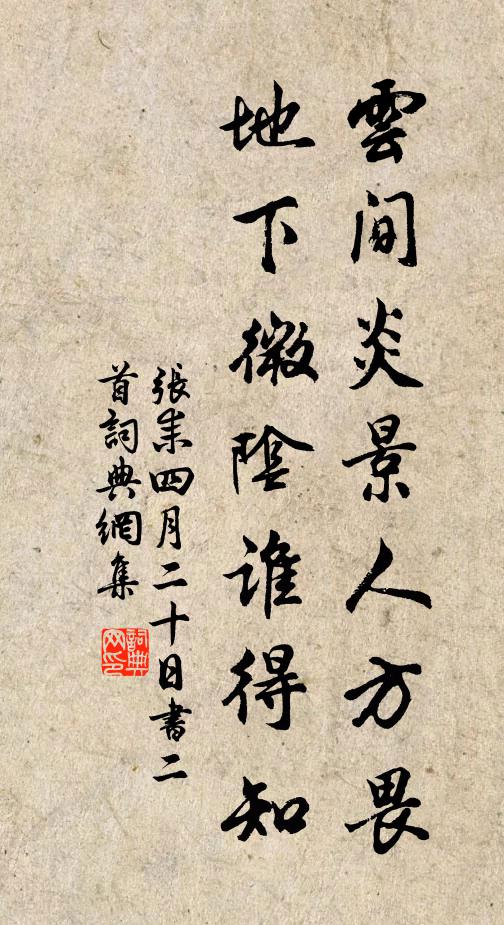 雲間炎景人方畏
地下微陰誰得知
張耒四月二十日書二
首詞典網集
詞典网印